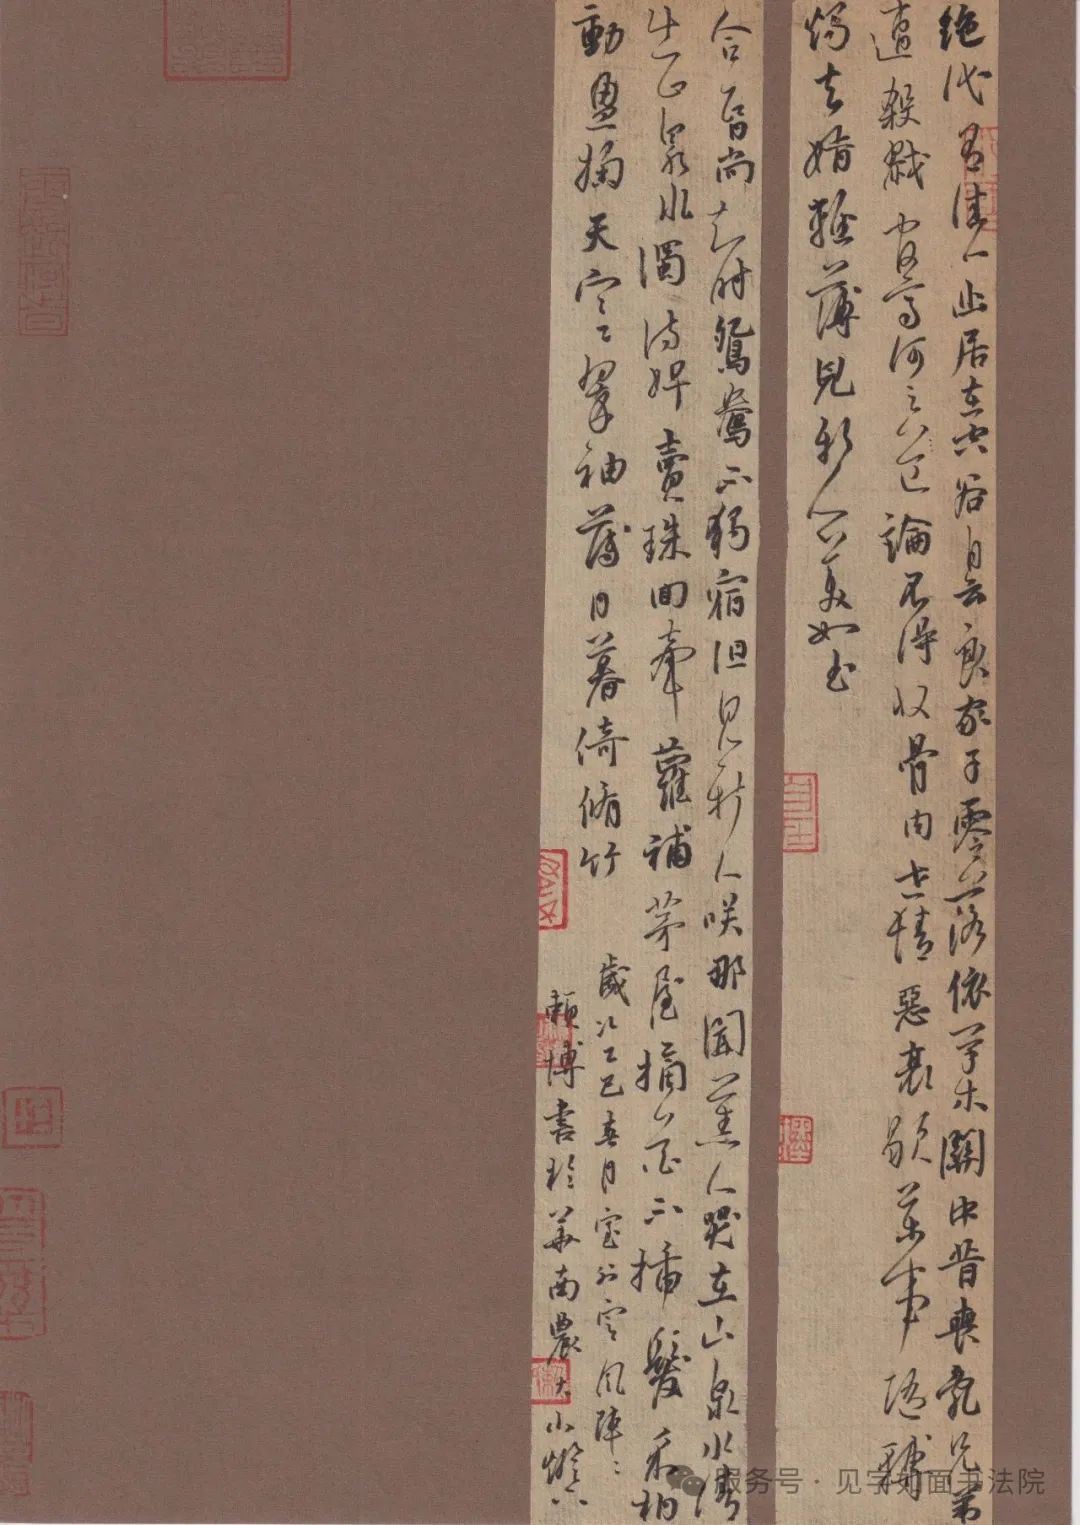 絶代有佳人幽居在空谷自云良家子零落依草木關中昔喪亂兄弟
遭殺戮官高何足論不得收骨肉世情惡衰歇萬事隨轉
燭夫婿輕薄兒新人美如玉
合昏尚知時鴛鴦不獨宿但見新人咲那聞舊人哭在山泉水清
出山泉水濁侍婢賣珠回牽蘿補茅屋摘花不插髮采柏
動盈掬天寒翠袖薄日暮倚脩竹
歲次乙巳春月室外寒風陣陣
賴博書於華南農大小燈下
服务号·见字如面书法院